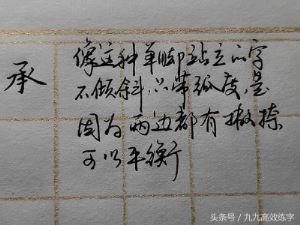 承
像这种单脚站立的字
不倾斜,只带弧度,是
因为两边都有撇捺
可以平衡
头条号 / 九九高效练字